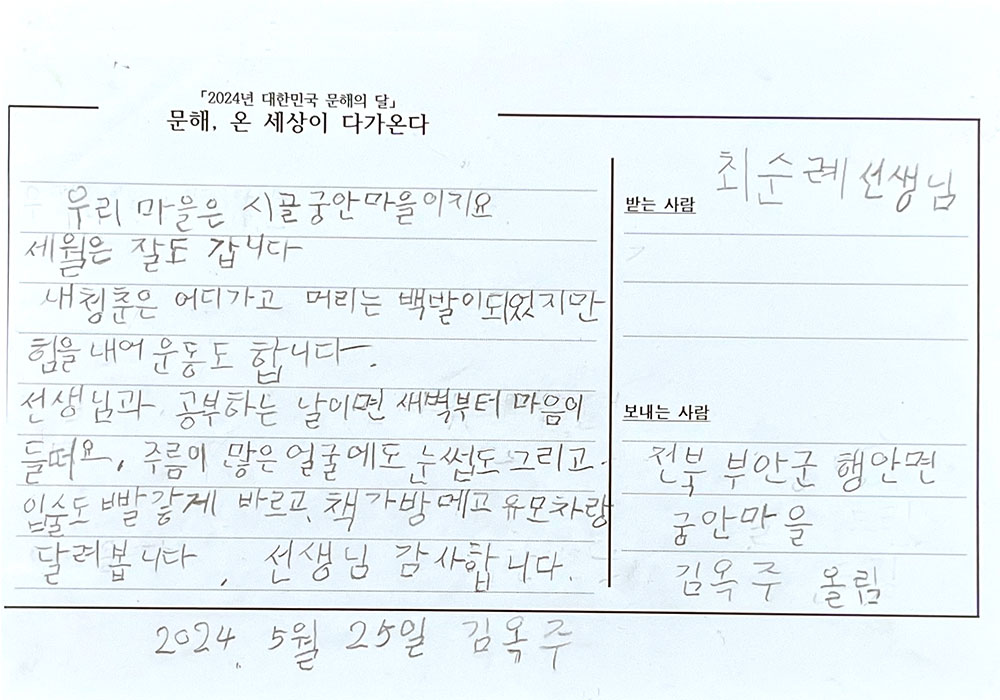 「2024년 대한민국 문해의 달」
문해, 온 세상이 다가온다
우리 마을은 시골 궁안마을이지요
세월은 잘도 갑니다
내청춘은 어디가고 머리는 백발이되었지만
힘을 내어 운동도 합니다.
선생님과 공부하는 날이면 새벽부터 마음이
들떠요, 주름이 많은 얼굴에도 눈썹도 그리고.
입술도 빨갛게 바르고, 책가방메고 유모차랑
달려봅니다, 선생님 감사합니다.
받는 사람
최순례선생님
보내는 사람
전북 부안군 행안면
궁안마을
김옥주 올림
2024 5월 25일 김옥주